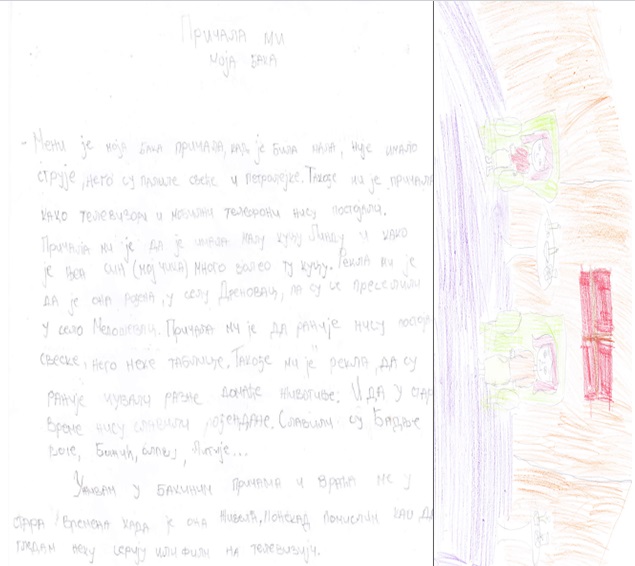 ПРИЧАЛА МИ
МОЈА БАКА
- Мени је моја бака причала, кад је била мала, није имало
струје, него су палиле свеће и петролејке. Такође ми је причала
како телевизори и мобилни телефони нису постојали.
Причала ми је да је имала малу куцу Линду и како
је њен син (мој чика) много волео ту куцу. Рекла ми је
да је она рођена, у селу Дреновац, па су се преселили
у село Недовјевац. Причала ми је да раније нису
свеске, него неке таблице. Такође ми је рекла, да су
раније чували разне домаће животиње. И да у
време нису славили рођендане. Славили су Бадње
Божић, славу,
Уживам у бакиним причама и враћа ме у
времена када је она живела, понекад помислим као да
гледам неку серију или филм на телевизији.